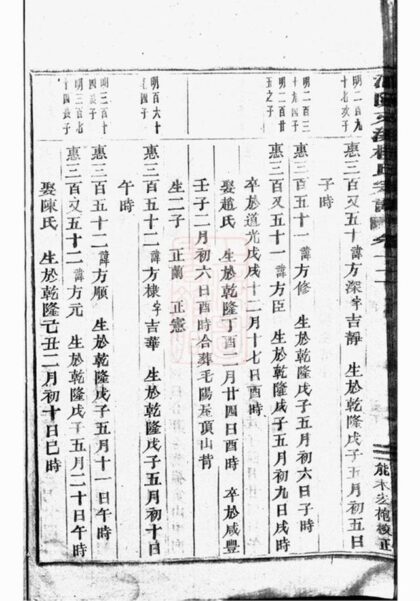 明二百九
十七次子
惠三百又五十 諱方深字吉靜 生於乾隆戊子五月初五日
子時
明二百三
十九四子
惠三百五十一 諱方修 生於乾隆戊子五月初六日子時
明二百廿
五之子
惠三百又五十一 諱方臣 生於乾隆戊子五月初九日戌時
卒於道光戊戌十二月十七日酉時
娶趙氏 生於乾隆丁酉二月廿四日酉時 卒於咸豐
壬子二月初六日酉時合葬毛陽屋頂山背
生二子 正蘭 正憲
明百六十
四子
惠三百五十二 諱方棣字吉華 生於乾隆戊子五月初十日
午時
明三百十
四長子
惠三百又五十二 諱方順 生於乾隆戊子五月十一日午時
明三百七
十四長子
惠三百又五十二 諱方元 生於乾隆戊子五月二十日午時
娶陳氏 生於乾隆己丑二月初十日巳時
校正